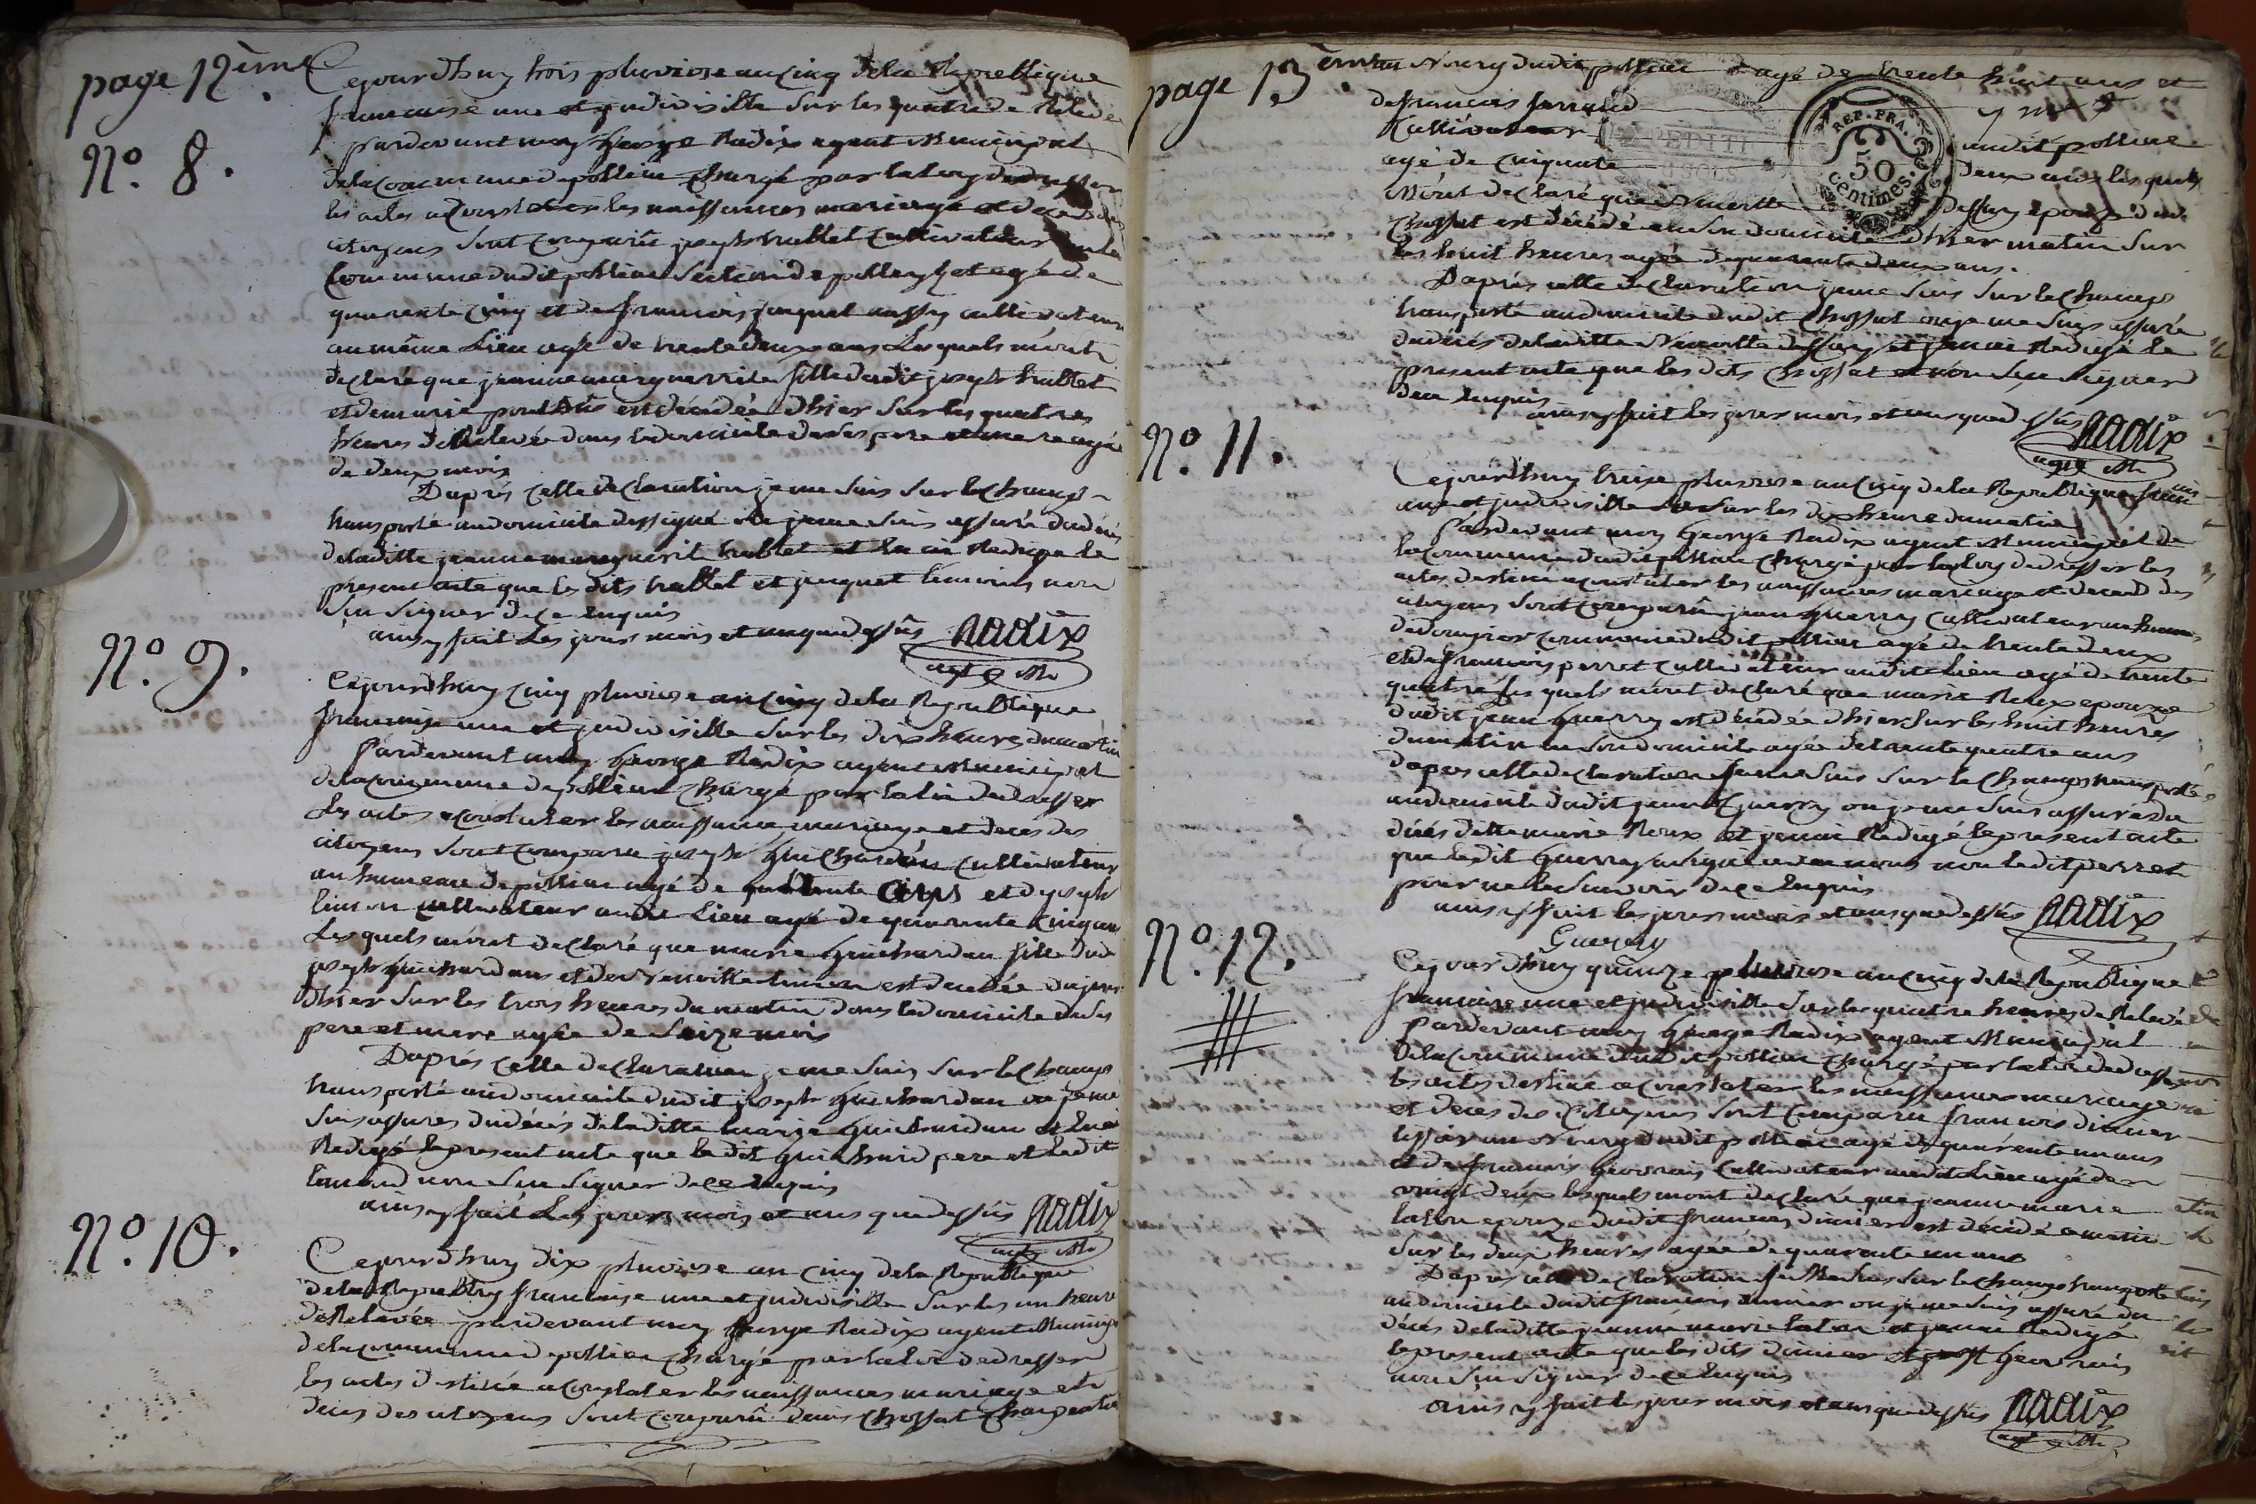 page 12ème
Cejourdhuy trois pluviose an cinq de la Republique
francaise une et judivisille sur les quatre de Relevée
pardevant moy George Radix agent Municipal
dela Commune de pollieu Chargé par la loy dedresser
les actes a Constater les naissances mariage et deces des
citoyens sont comparû joseph trablet Cultivateur
Commune dudit pollieu section de agé de
quarente cinq et de francois jaquet aussy cultivateur
au même Lieu agé de trente deux ans Lesquels mont
declaré que jeanne marguerrite fille dudit joseph trablet
et de marie est décédée dhier sur les quatres
heures de Relevée dans le domicile de ses pere et mere agée
de deux mois
Daprés cette declaration je me suis sur le Champ
transporté au domicile dessigné ou je me suis assuré dudécés
deladitte jeanne marguerit trablet et lai Redigé le
present acte que les dits trablet et jaquet temoins non
sçu signer de ce Enquis
ainsy fait Les jours mois et an que dessûs Radix
agt M.
N.º 8.
N.º 9.
Cejourdhuy cinq pluviose an cinq dela Republique
francaise une et judivisille sur les dix heures du matin
Pardevant moy George Radix agent Municipal
dela Commune de pollieu Chargé par la loi dedresser
les actes a constater les naissance mariage et decés des
citoyens sont comparu joseph Guichardan cultivateur
au hameau de pollieu agé de quarente cinq et de joseph
cultivateur au dit Lieu agé de quarente cinq ans
Lesquels mont declaré que marie Guichardan fille dudit
joseph Guichardan et de est decedée
dhier sur les trois heures du matin dans le domicile de ses
pere et mere agée de seize mois
Daprés cette declaration je me suis sur le Champ
transporté au domicile dudit joseph Guichardan ou je me
suis assuré du décés de laditte marie Guichardan et lai
Redigé le present acte que le dit Guichard pere et ledit
non sçu signer de ce Enquis
ainsy fait Les jours mois et ans que dessûs Radix
agt M.
N.º 10.
Cejourdhuy dix pluviose an cinq dela Republique
dela Republiq francaise une et judivisille sur les un heure
de Relevée pardevant moy George Radix agent Municip
dela Commune de pollieu Chargé par la loi dedresser
les actes destiné a constater les naissances mariage et
deces des citoyens sont comparû denis Chossat Charpentie
page 13ème
dudit pollieu agé de trente huit ans et
de francois
Cultivateur audit pollieu
agé de cinquante deux ans lesquels
mont declaré que épouse dudit
Chossat est décédé en son domicile dhier matin sur
les huit heures agée de quarente deux ans.
Daprés cette declaration je me suis sur le Champ
transporté au domicile dudit Chossat ou je me suis assuré
du décés de laditte et jeai Redigé le
present acte que les dits Chossat et non sçu signer
de ce Enquis
ainsy fait les jour mois et an que dessûs Radix
agt M.
REP. FRA.
50
centimes.
N.º 11.
Cejourdhuy treize pluviose an cinq dela Republique francais
une et judivisille sur les dix heure du matin
Pardevant moy George Radix agent Municipal de
la Commune dudit pollieu Chargé par la loy dedresser les
actes destiné a constater les naissances mariage et decerd des
citoyens sont comparû jean Guerry Cultivateur au hameau
commune dudit pollieu agé de trente deux
et de francois perret Cultivateur au dit Lieu agé de trente
quatre Lesquels mont declaré que marie Roux epouse
dudit jean Guerry est décédée dhier sur les huit heures
du matin en son domicile agée de trente quatre ans
dapres cette declaration je me suis sur le Champ transporté
au domicile dudit jean Guerry ou je me suis assuré du
décés ditte marie Roux et jeai Redigé le present acte
que ledit Guerry a signé avec nous non ledit perret
pour ne le scavoir de ce Enquis
ainsy fait les jours mois et ans que dessûs Radix
Guerry
N.º 12.
Cejourdhuy quinze pluviose an cinq dela Republique
francaise une et judivisille sur les quatre heures de Relevé
pardevant moy George Radix agent Municipal
dela Commune dudit pollieu Chargé par la loi dedresser
les actes destiné a Constater les naissances mariage
et deces des Citoyens sont comparu francois dimier
dudit pollieu agé de quarente un ans
et de francois Genvrais Cultivateur audit Lieu agé de
vingt deux lesquels mont declaré que jeanne marie
epouze dudit francois dimier est décédé ce matin
sur les deux heures agée de quarente un ans
Daprés cette declaration je me suis sur le Champ transporté
au domicile dudit francois dimier ou je me suis assuré du
décés deladitte jeanne marie et jeai Redigé
le present acte que les dits dimier et Genvrais
non sçu signer de ce Enquis
ainsy fait les jours mois et ans que dessûs Radix
agt M.